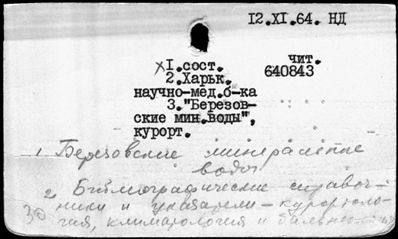 12.XI.64. НД
х1.сост. чит.
2.Харьк. 640843
научно-мед.б-ка " " "
3."Березов-
ские мин.воды", " " "
курорт.
1 Березовские минеральные
воды
2 Библиографические справоч-
ники и указатели - курортоло-
гия, климатология и